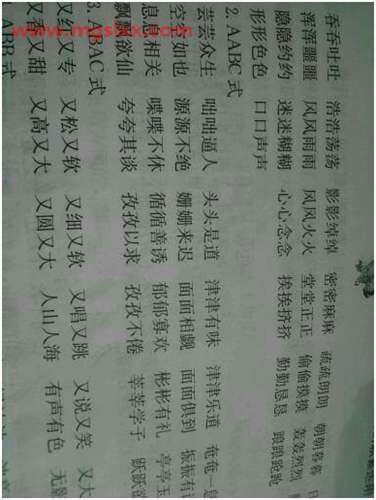 吞吞吐吐 浩浩荡荡 影影绰绰 密密麻麻 疏疏朗朗 朝朝暮暮
浑浑噩噩 风风雨雨 风风火火 堂堂正正 偷偷摸摸 轰轰烈烈
隐隐约约 迷迷糊糊 心心念念 挨挨挤挤 勤勤恳恳 踉踉跄跄
形形色色 口口声声
2. AABC 式
芸芸众生 咄咄逼人 头头是道 津津有味 津津乐道 奄奄一
空空如也 源源不绝 姗姗来迟 面面相觑 面面俱到 振振有
息息相关 喋喋不休 循循善诱 郁郁寡欢 彬彬有礼 亭亭玉
飘飘欲仙 夸夸其谈 孜孜以求 孜孜不倦 莘莘学子 跃跃欲
3. ABAC 式
又红又专 又松又软 又细又软 又唱又跳 又说又笑 又大
又香又甜 又高又大 又圆又大 人山人海 有声有色 无影